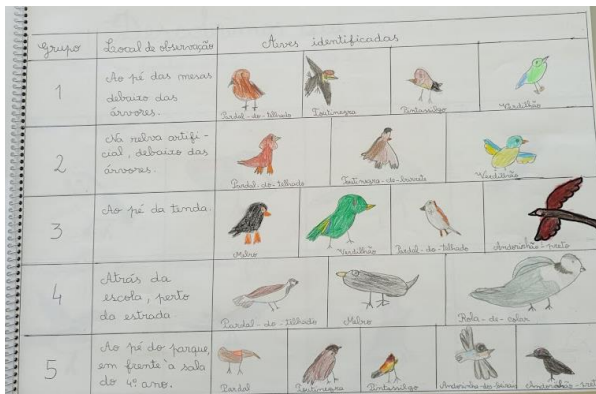 Grupo
Local de observação
Aves identificadas
1
Ao pé das mesas
debaixo das
árvores.
Pardal-do-telhado
Toutinegra
Pintassilgo
Verdilhão
2
Na relva artifi-
cial, debaixo das
árvores.
Pardal-do-telhado
Toutinegra-de-barrete
Verdilhão
3
Ao pé da tenda
Melro
Verdilhão
Pardal-do-telhado
Andorinhão-preto
4
Atrás da
escola, perto
da estrada
Pardal-do-telhado
Melro
Rola-de-colar
5
Ao pé do parque,
em frente à sala
do 4º ano.
Pardal
Toutinegra
Pintassilgo
Andorinha-do-beiral
Andorinhão-preto